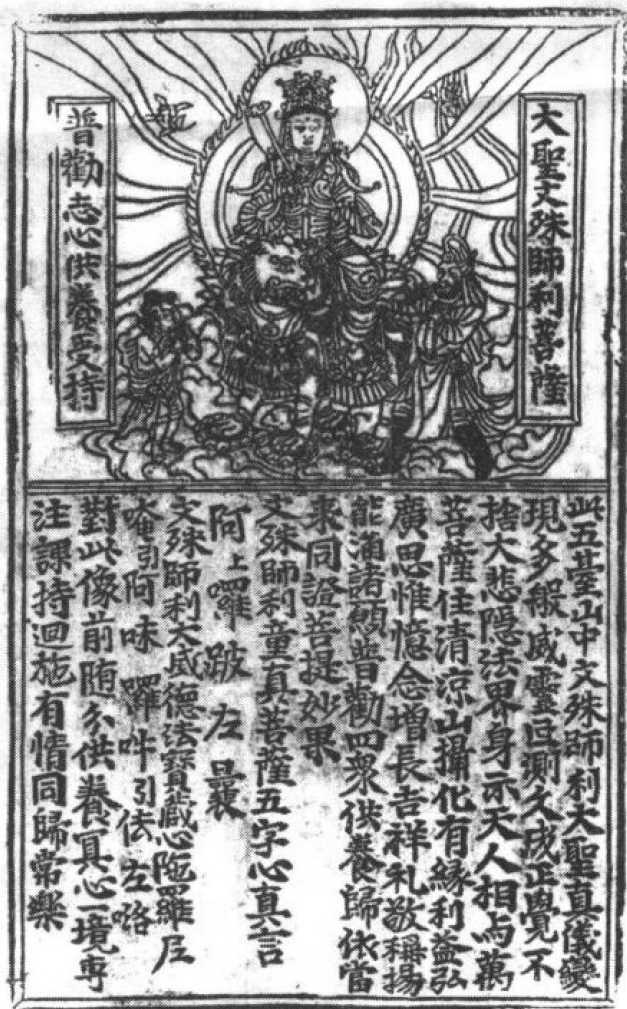 大聖文殊師利菩薩
普勸志心供養受持
此五臺山中文殊師利大聖真儀變
現多般威靈叵測久成正覺不
捨大悲隱法界身示天人相与萬
菩薩住清涼山攝化有緣利益弘
廣思惟憶念增長吉祥礼敬稱揚
能滿諸願普勸四衆供養歸依當
來同證菩提妙果
文殊師利童真菩薩五字心真言
阿上囉跛左曩
文殊師利大威德法寶藏心陁羅尼
唵引阿味囉吽引佉左咯
對此像前随分供養冥心一境專
注課持迴施有情同歸常樂